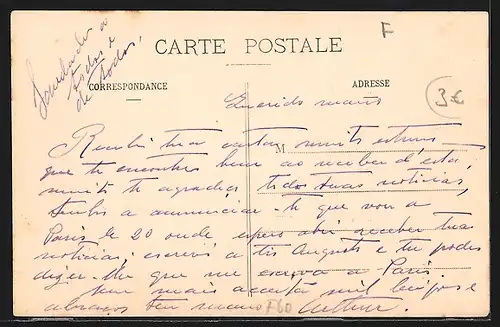 Saudades a
todos e
de todos,
F
CARTE POSTALE
CORRESPONDANCE
ADRESSE
3€
Querido mano
M
Recebi tua carta muito estimo
que te encontres bem ao receber d'esta,
muito te agradeço todas tuas noticias,
tenho a annunciar-te que vou a
Paris le 20 onde espero ahi receber tuas
noticias, escrevi a tio Augusto e tu podes
dizer-lhe que me escreva a Paris.
Sem mais aceita mil beijos e
abraços teu mano Arthur.
F60